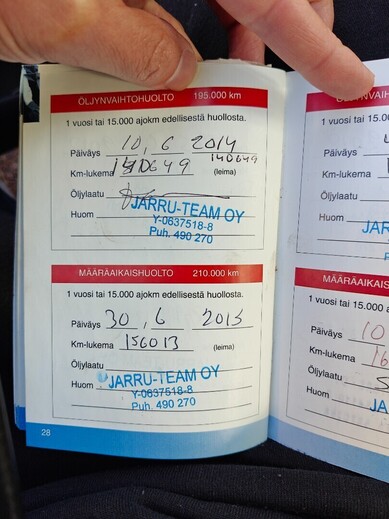 ÖLJYNVAIHTOHUOLTO 195.000 km
1 vuosi tai 15.000 ajokm edellisestä huollosta.
Päiväys 10, 6 2014
140649
Km-lukema 140649 (leima)
Öljylaatu
JARRU-TEAM OY
Huom
Y-0637518-8
Puh. 490 270
MÄÄRÄAIKAISHUOLTO 210.000 km
1 vuosi tai 15.000 ajokm edellisestä huollosta.
Päiväys 30, 6 2015
Km-lukema 156013 (leima)
Öljylaatu
JARRU-TEAM OY
Huom
Y-0637518-8
Puh. 490 270
28
1 vuosi tai 15.000 a
Päiväys
Km-lukema
Öljylaatu
Huom
JA
MÄÄRÄAIKAIS
1 vuosi tai 15.000 a
Päiväys 10
Km-lukema 16
Öljylaatu
Huom
JA